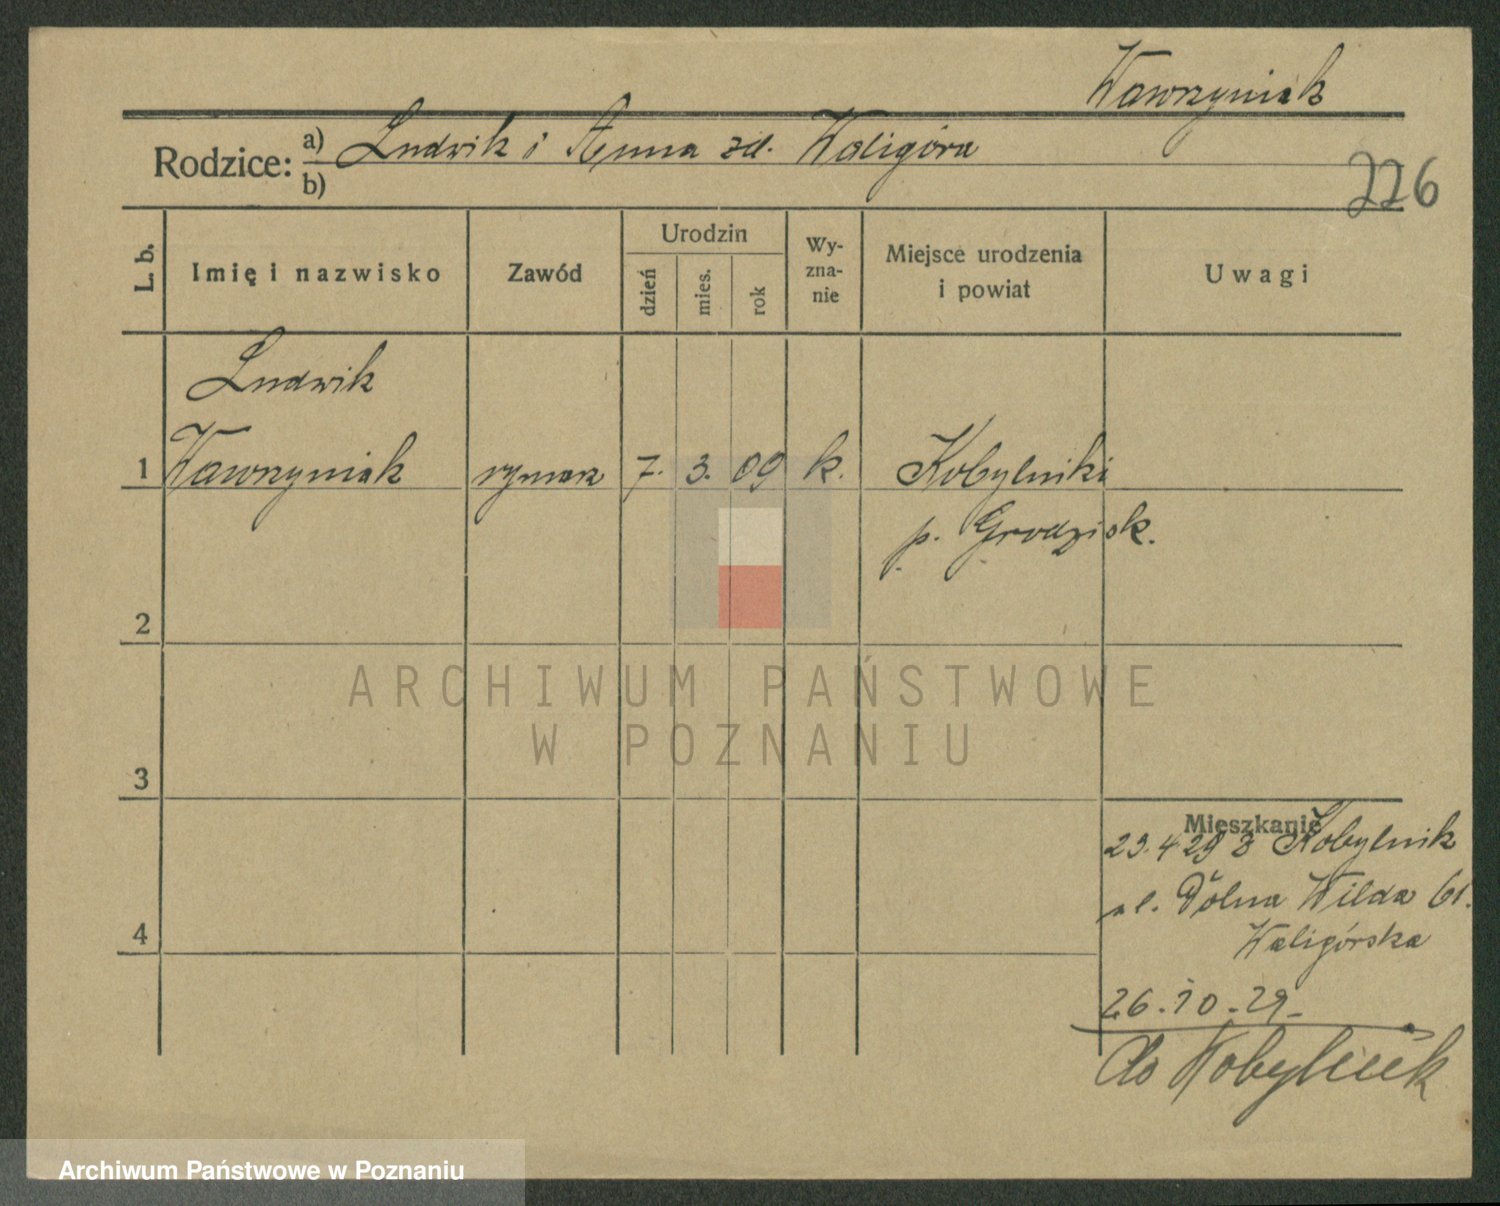 Wawrzyniak
Rodzice: a) Ludwik i Anna zd. Waligóra
b)
226
L. b. Imię i nazwisko Zawód Urodzin dzień mies. rok Wy-zna-nie Miejsce urodzenia i powiat Uwagi
Ludwik
1 Wawrzyniak rymarz 7. 3. 09 k. Kobylniki
p. Grodzisk.
2
ARCHIWUM PAŃSTWOWE
W POZNANIU
3
Mieszkanie
23.4 29 z Kobylnik
ul. Dolna Wilda 61.
Waligórska
4
26.10.29
do Kobylnik
Archiwum Państwowe w Poznaniu